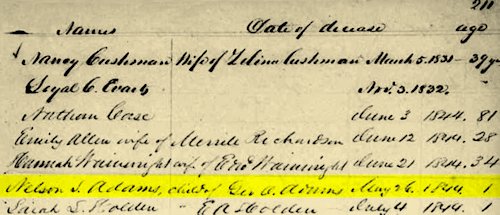 211
Names Date of decease age
Nancy Cushman Wife of Zebina Cushman March 5. 1831 - 39 yr
Loyal C. Evarts Nov. 3. 1832.
Nathan Case June 3 1844. 81
Emily Allen wife of Merrile Richardson June 12 1844. 28
Hannah Wainwright wif of Edw Wainwright June 21 1844. 34
Nelson S. Adams, child of Geo. O. Adams May 26. 1844 1
Sarah S. Holden E A Holden July 4 1844. 1